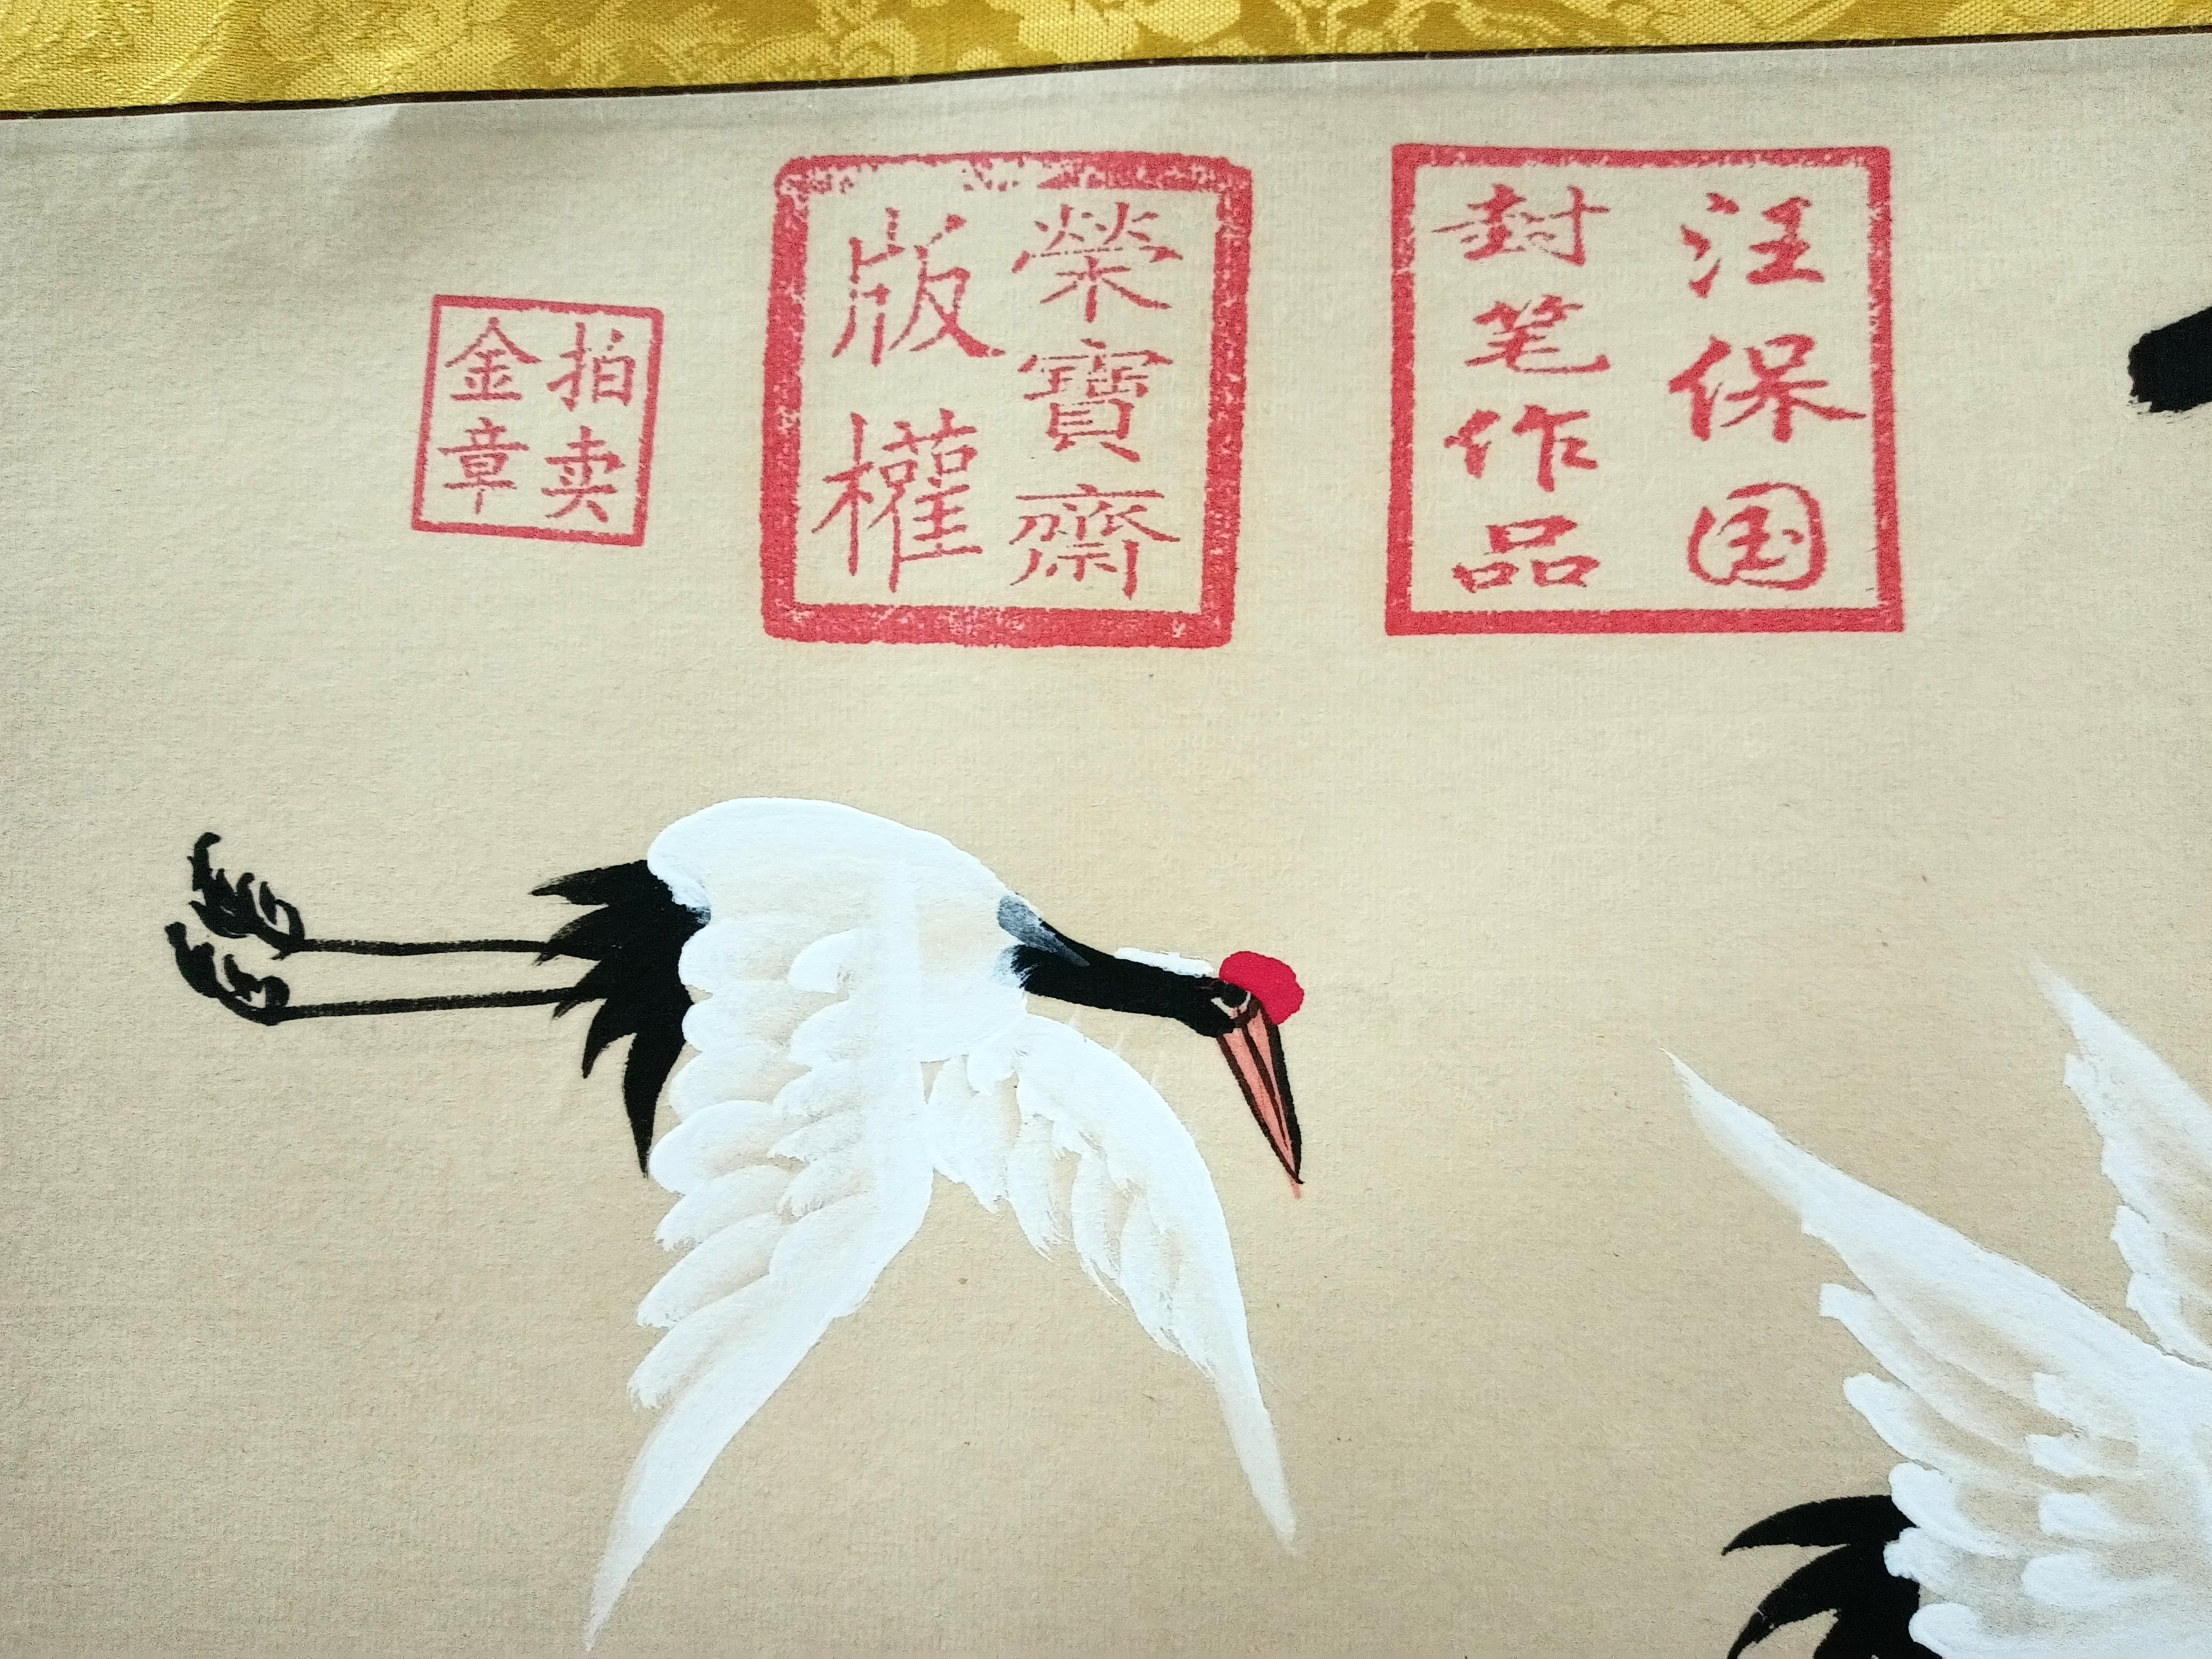 汪保国
封笔作品
榮寶齋
版權
拍卖
金章